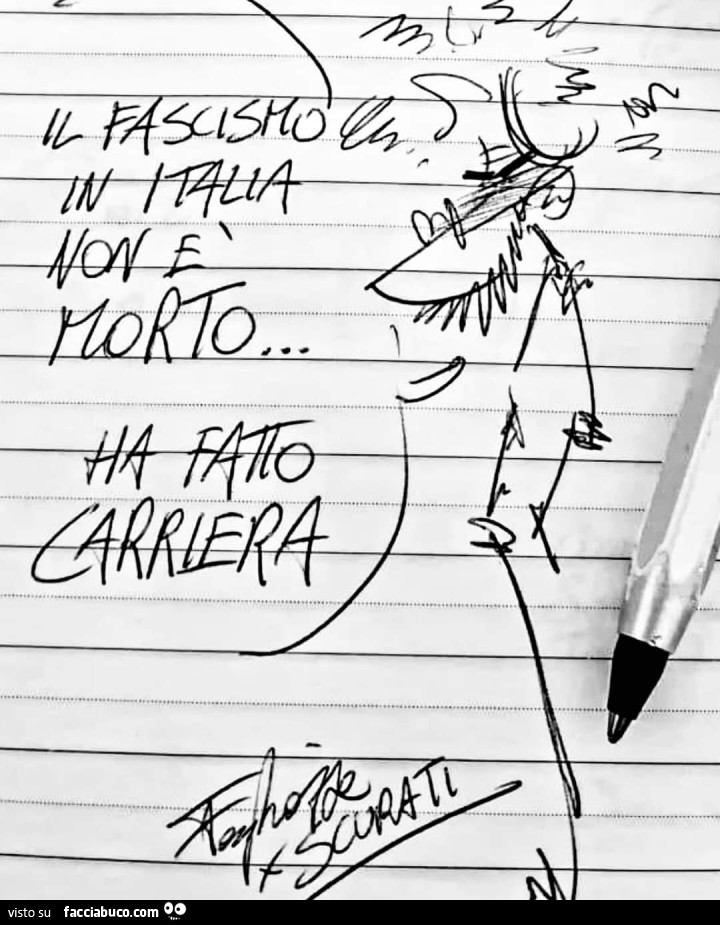 IL FASCISMO
IN ITALIA
NON È
MORTO...
HA FATTO
CARRIERA
x SCURATI
visto su facciabuco.com